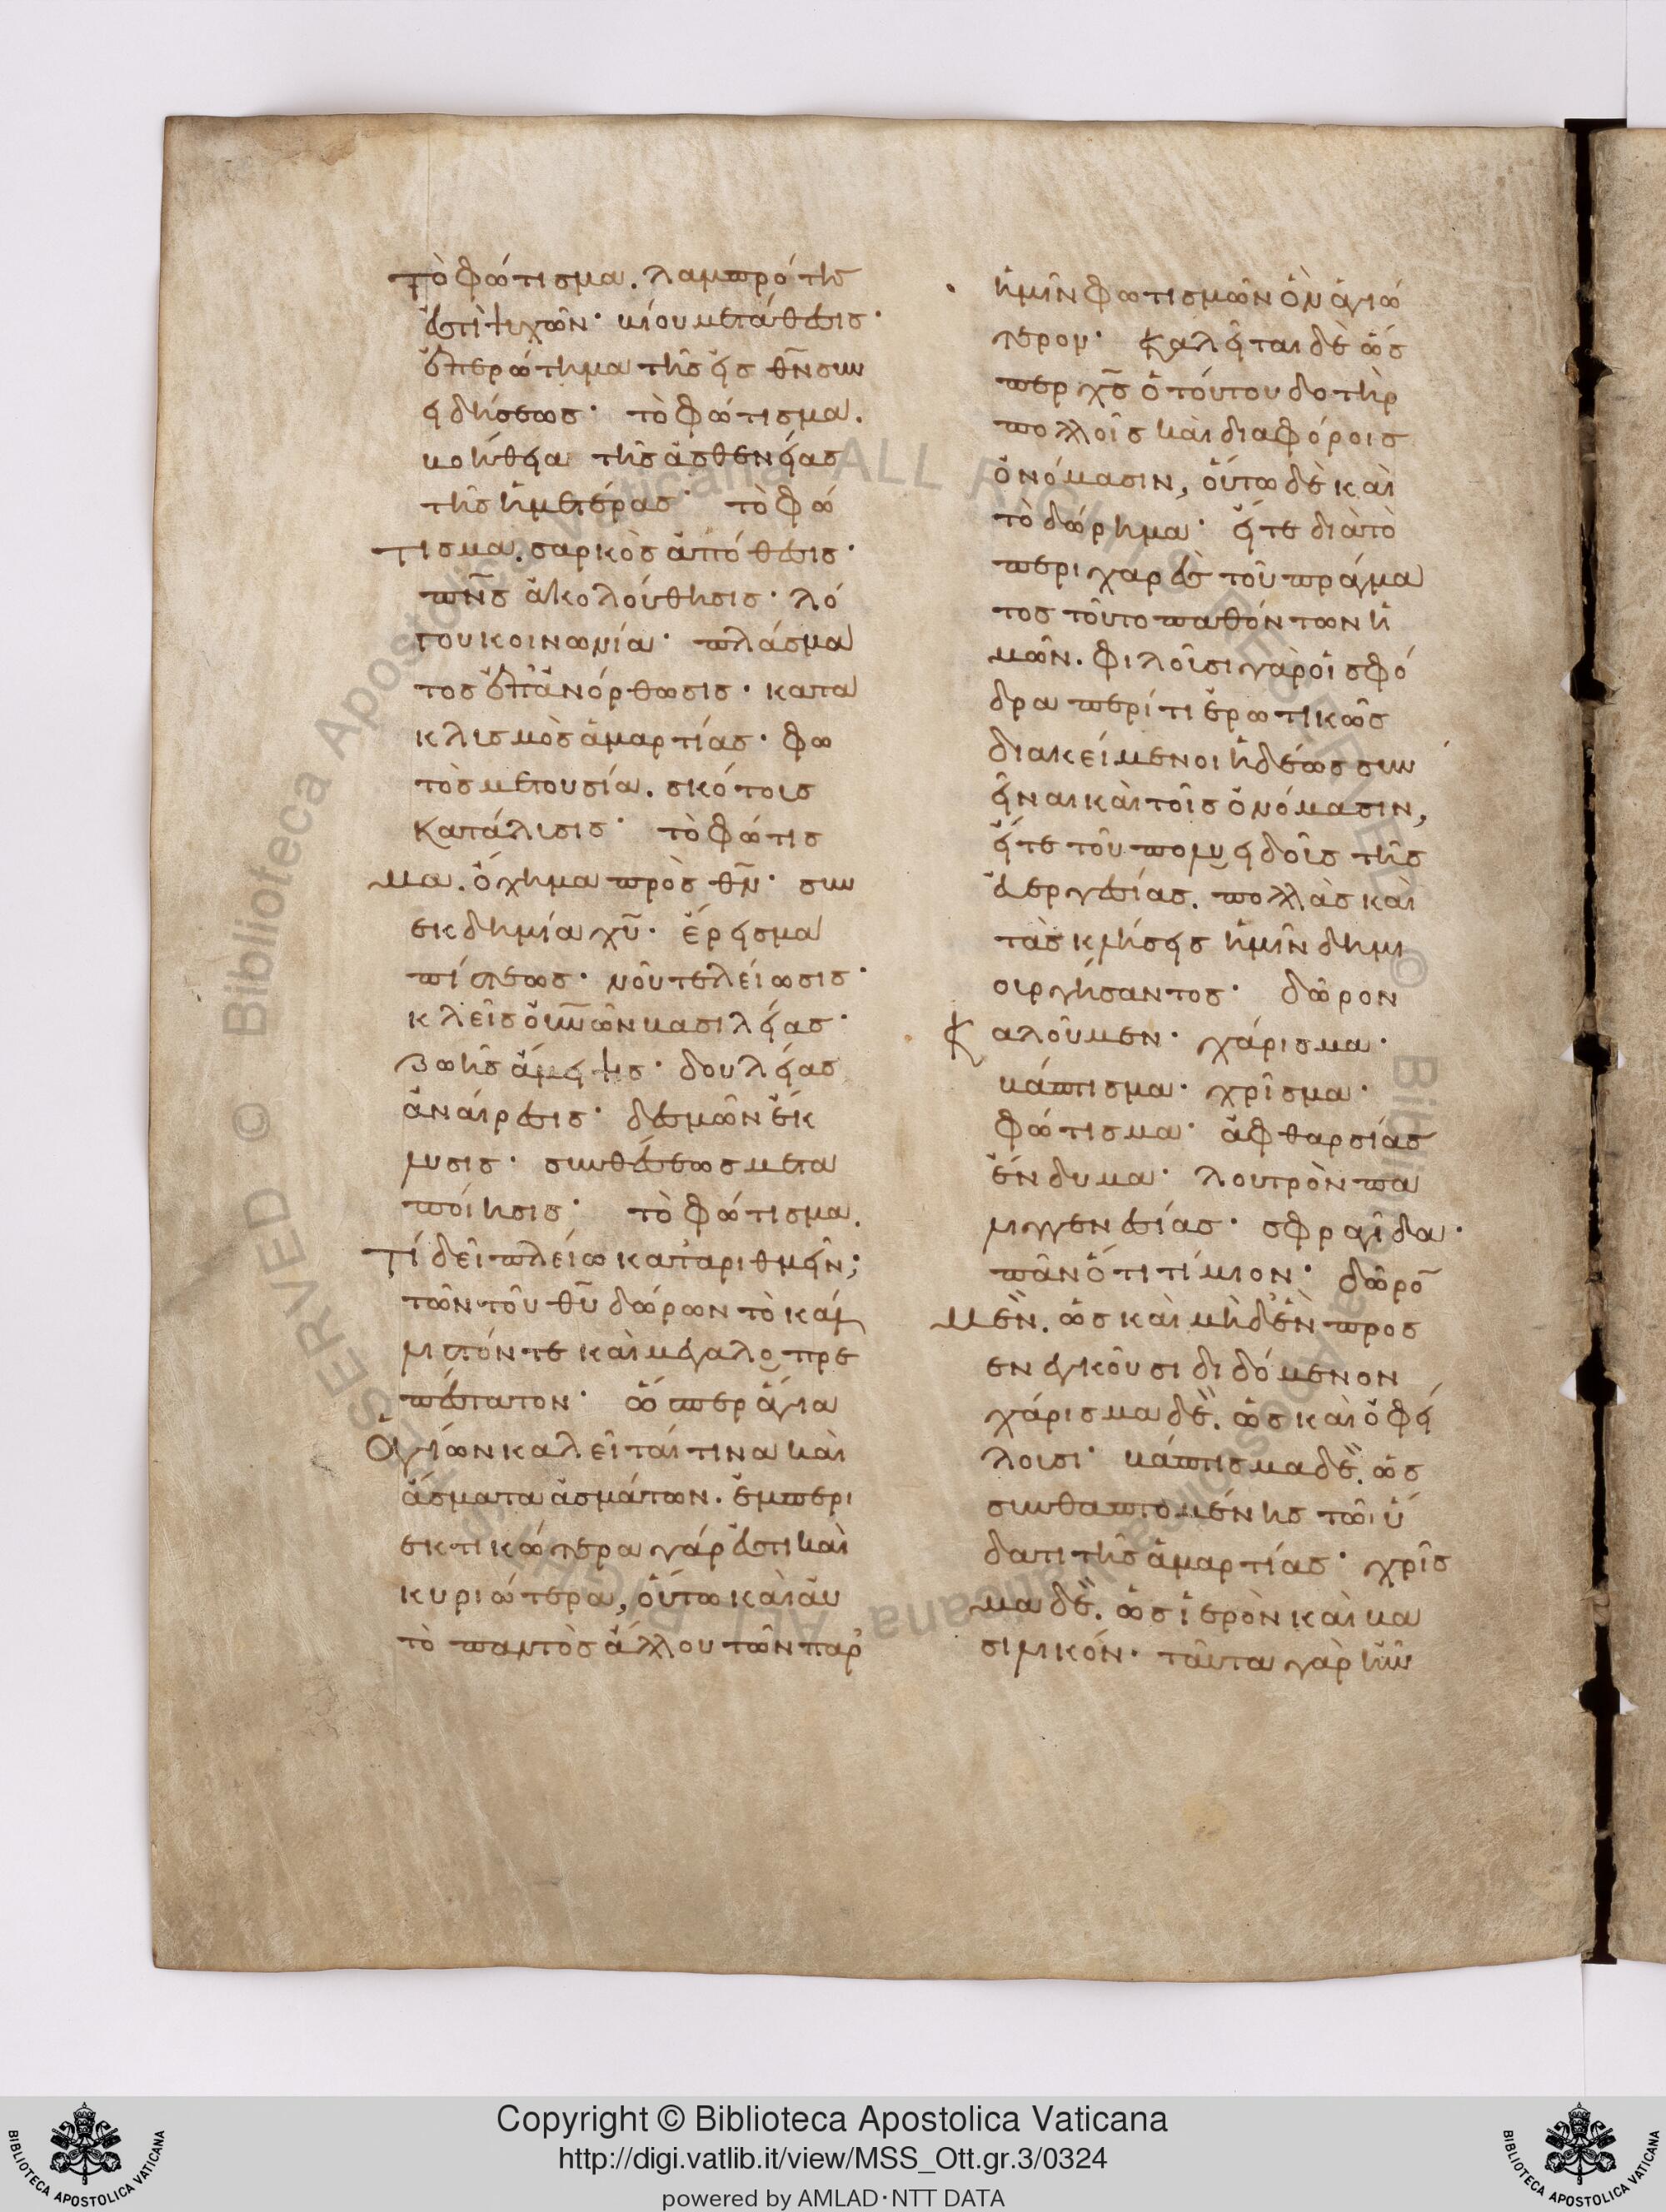 Τὸ φώτισμα. λαμπρότης
ἐστὶ ψυχῶν· βίου μετάθεσις·
ἐπερώτημα τῆς εἰς θ̅ν̅ συν
ειδήσεως· τὸ φώτισμα.
βοήθεια τῆς ἀσθενείας
τῆς ἡμετέρας· τὸ φώ
τισμα. σαρκὸς ἀπόθεσις·
π̅ν̅ς̅ ἀκολούθησις· λό
γου κοινωνία· πλάσμα
τος ἐπανόρθωσις· κατα
κλυσμὸς ἁμαρτίας· φω
τὸς μετουσία. σκότους
κατάλυσις· τὸ φώτισ
μα. ὄχημα πρὸς θ̅ν̅· συν
εκδημία χ̅υ̅· ἔρεισμα
πίστεως· νοῦ τελείωσις·
κλεῖς οὐ̅ν̅ῶν βασιλείας·
ζωῆς ἄμειψις· δουλείας
ἀναίρεσις· δεσμῶν ἔκ
λυσις· συνθέσεως μετα
ποίησις· τὸ φώτισμα.
Τί δεῖ πλείω καταριθμεῖν;
τῶν τοῦ θ̅υ̅ δώρων τὸ κάλ
λιστόν τε καὶ μεγαλοπρε
πέστατον· ὥσπερ ἅγια
ἁγίων καλεῖταί τινα καὶ
ᾄσματα ᾀσμάτων. ἐμπερι
εκτικώτερα γάρ ἐστι καὶ
κυριώτερα, οὕτω καὶ αὐ
τὸ παντὸς ἄλλου τῶν παρ'
ἡμῖν φωτισμῶν ὂν ἁγιώ
τερον· καλεῖται δὲ ὥσ
περ χ̅ς̅ ὁ τούτου δοτὴρ
πολλοῖς καὶ διαφόροις
ὀνόμασιν, οὕτω δὲ καὶ
τὸ δώρημα· εἴτε διὰ τὸ
περιχαρὲς τοῦ πράγμα
τος τοῦτο παθόντων ἡ
μῶν. φιλοῦσι γὰρ οἱ σφό
δρα περί τι ἐρωτικῶς
διακείμενοι ἡδέως συν
εῖναι καὶ τοῖς ὀνόμασιν,
εἴτε τοῦ πολυειδοῦς τῆς
εὐεργεσίας. πολλὰς καὶ
τὰς κλήσεις ἡμῖν δημι
ουργήσαντος· δῶρον
καλοῦμεν· χάρισμα·
βάπτισμα· χρῖσμα·
φώτισμα· ἀφθαρσίας
ἔνδυμα· λουτρὸν πα
λιγγενεσίας· σφραγῖδα·
πᾶν ὅτι τίμιον· δῶρο̅
μὲν. ὡς καὶ μηδὲν προσ
ενεγκοῦσι διδόμενον
χάρισμα δὲ. ὡς καὶ ὀφεί
λουσι· βάπτισμα δὲ. ὡς
συνθαπτομένης τῶι ὕ
δατι τῆς ἁμαρτίας· χρῖσ
μα δὲ. ὡς ἱερὸν καὶ βα
σιλικόν· ταῦτα γὰρ ἦν
Copyright © Biblioteca Apostolica Vaticana
http://digi.vatlib.it/view/MSS_Ott.gr.3/0324
powered by AMLAD·NTT DATA
BIBLIOTECA APOSTOLICA VATICANA
BIBLIOTECA APOSTOLICA VATICANA